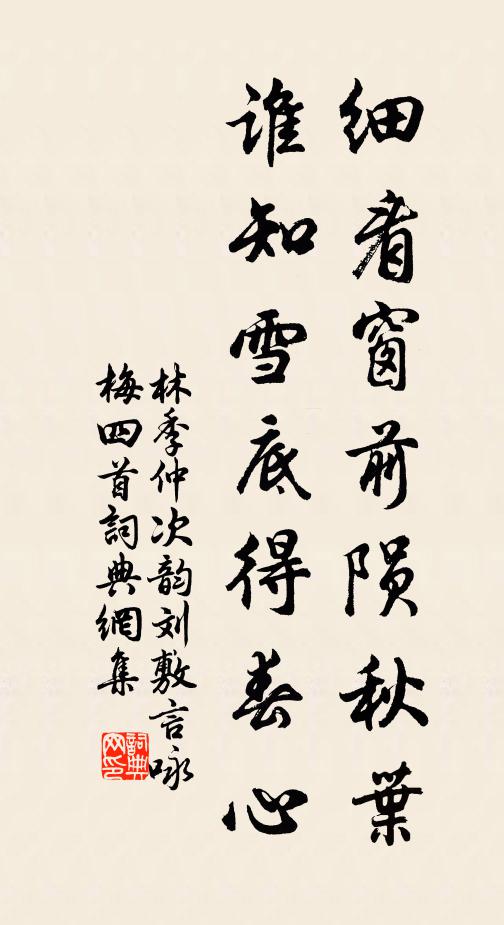 细看窗前陨秋葉
谁知雪底得春心
林季仲次韵刘敷言咏
梅四首詞典網集
詞典
网印